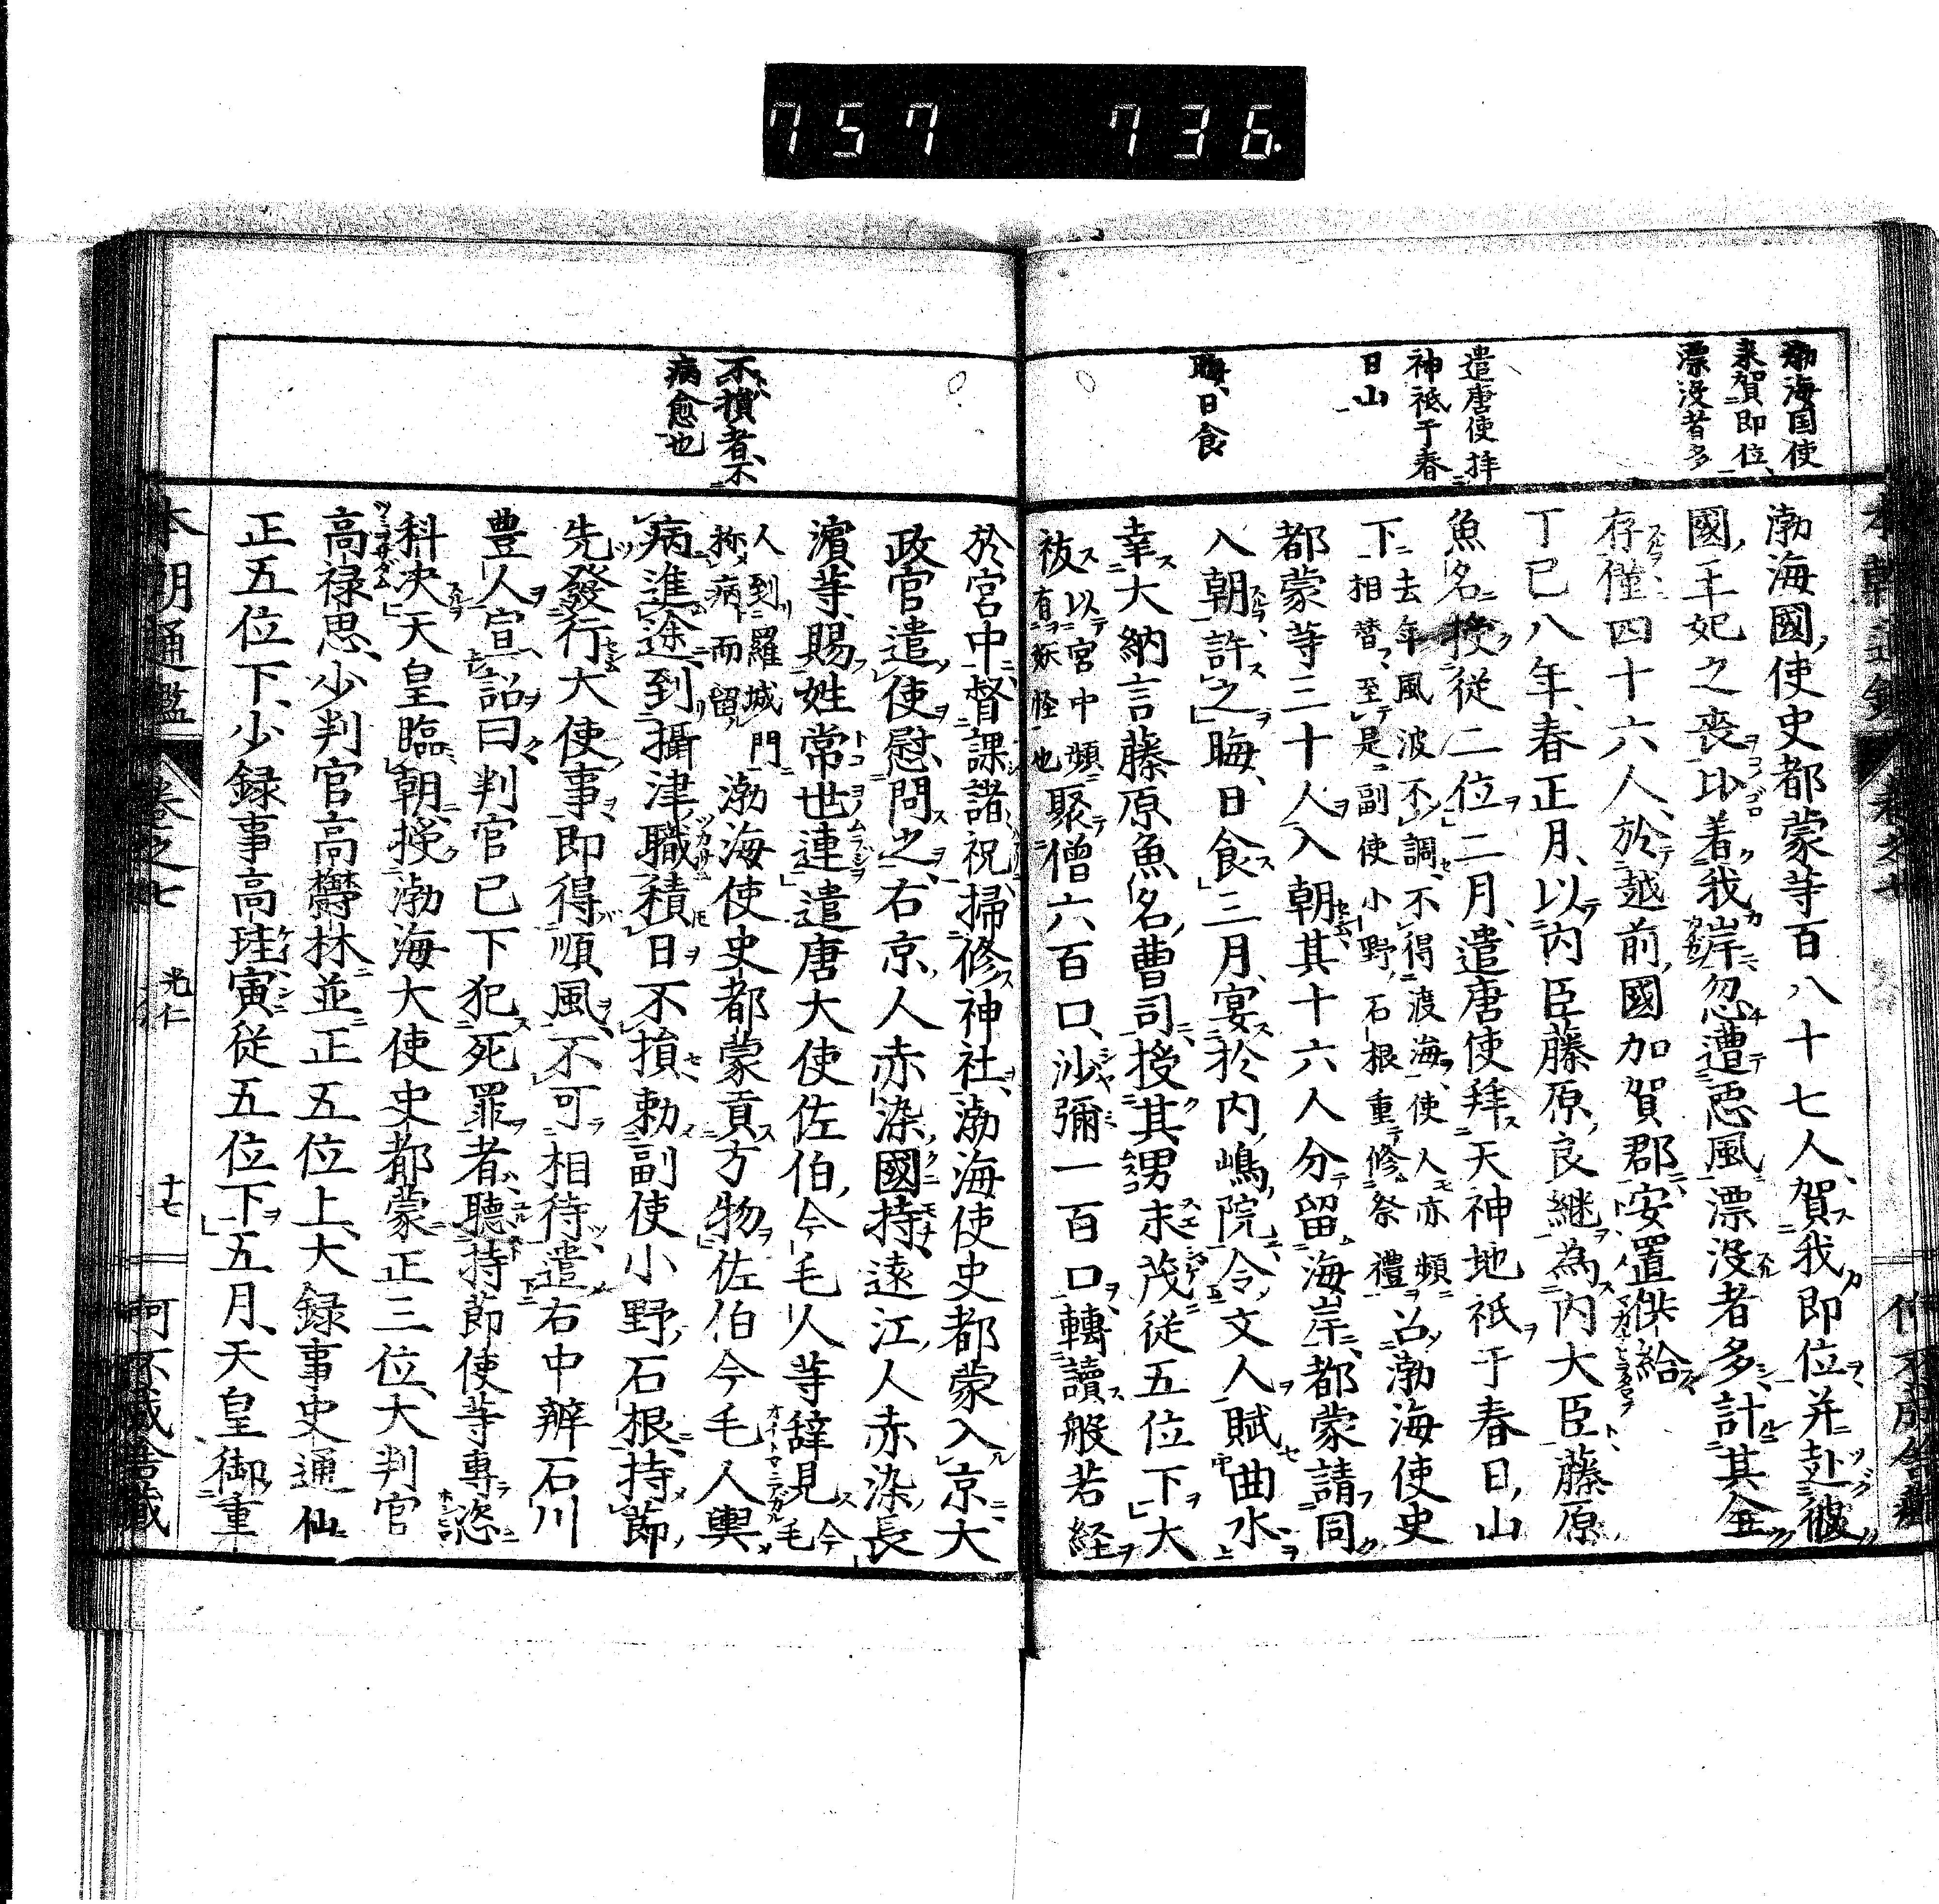 757 736.
渤海国使
来賀即位
漂没者多
遣唐使拝
神祇于春
日山
晦日食
渤海國使史都蒙等百八十七人賀我即位并赴彼
國王妃之喪比着我岸忽遭悪風漂没者多計其全
存僅四十六人於越前國加賀郡安置供給
丁巳八年春正月以内臣藤原良継為内大臣藤原
魚名授従二位二月遣唐使拜天神地祇于春日山
下去年風波不調不得渡海使人亦頻
相替至是副使小野石根重修祭禮召渤海使史
都蒙等三十人入朝其十六人分留海岸都蒙請同
入朝許之晦日食三月宴於内嶋院令文人賦曲水
幸大納言藤原魚名曹司授其男末茂従五位下大
祓以宮中頻
有妖怪也聚僧六百口沙彌一百口轉讀般若経
不損者不
病愈也
於宮中督課諸祝掃修神社渤海使史都蒙入京大
政官遣使慰問之右京人赤染國持遠江人赤染長
濵等賜姓常世連遣唐大使佐伯今毛人等辞見今
毛
人到羅城門
称病而留渤海使史都蒙貢方物佐伯今毛人輿
病進途到攝津職積日不損勅副使小野石根持節
先發行大使事即得順風不可相待遣右中辨石川
豊人宣詔曰判官已下犯死罪者聴持節使等專恣
科决天皇臨朝授渤海大使史都蒙正三位大判官
高禄思少判官高欝林並正五位上大録事史通仙
正五位下少録事高珪寅従五位下五月天皇御重
本朝通鑑 卷之七 光仁 十七